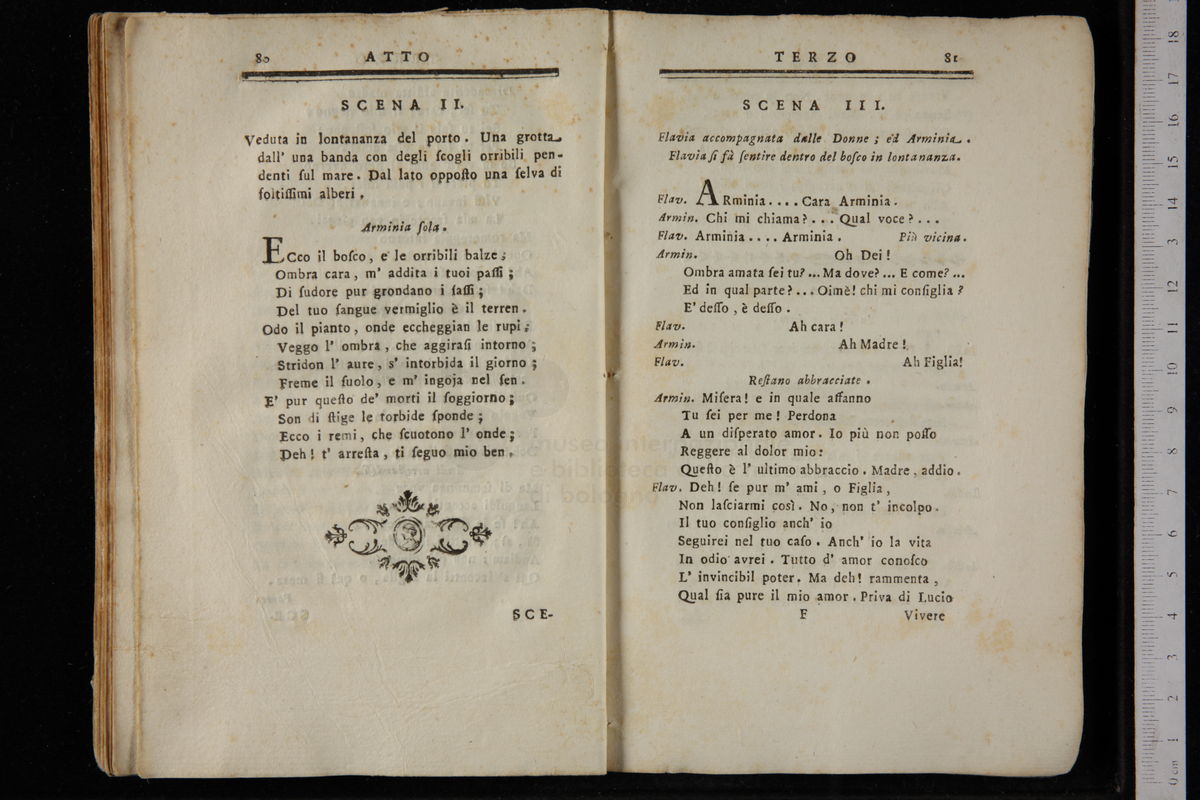 80 ATTO
SCENA II.
Veduta in lontananza del porto. Una grotta
dall' una banda con degli ſcogli orribili pen-
denti ſul mare. Dal lato oppoſto una ſelva di
foltiſſimi alberi.
Arminia ſola.
Ecco il boſco, e le orribili balze;
Ombra cara, m' addita i tuoi paſſi;
Di ſudore pur grondano i ſaſſi;
Del tuo ſangue vermiglio è il terren.
Odo il pianto, onde eccheggian le rupi;
Veggo l' ombra, che aggiraſi intorno;
Stridon l' aure, s' intorbida il giorno;
Freme il ſuolo, e m' ingoja nel ſen.
E' pur queſto de' morti il ſoggiorno;
Son di ſtige le torbide ſponde;
Ecco i remi, che ſcuotono l' onde;
Deh! t' arreſta, ti ſeguo mio ben.
SCE-
TERZO 81
SCENA III.
Flavia accompagnata dalle Donne; ed Arminia.
Flavia ſi fà ſentire dentro del boſco in lontananza.
Flav. ARminia.... Cara Arminia.
Armin. Chi mi chiama?... Qual voce?...
Flav. Arminia.... Arminia. Più vicina.
Armin. Oh Dei!
Ombra amata ſei tu?... Ma dove?... E come?...
Ed in qual parte?... Oimè! chi mi conſiglia?
E' deſſo, è deſſo.
Flav. Ah cara!
Armin. Ah Madre!
Flav. Ah Figlia!
Reſtano abbracciate.
Armin. Miſera! e in quale affanno
Tu ſei per me! Perdona
A un diſperato amor. Io più non poſſo
Reggere al dolor mio:
Queſto è l' ultimo abbraccio. Madre, addio.
Flav. Deh! ſe pur m' ami, o Figlia,
Non laſciarmi così. No, non t' incolpo.
Il tuo conſiglio anch' io
Seguirei nel tuo caſo. Anch' io la vita
In odio avrei. Tutto d' amor conoſco
L' invincibil poter. Ma deh! rammenta,
Qual ſia pure il mio amor. Priva di Lucio
F Vivere